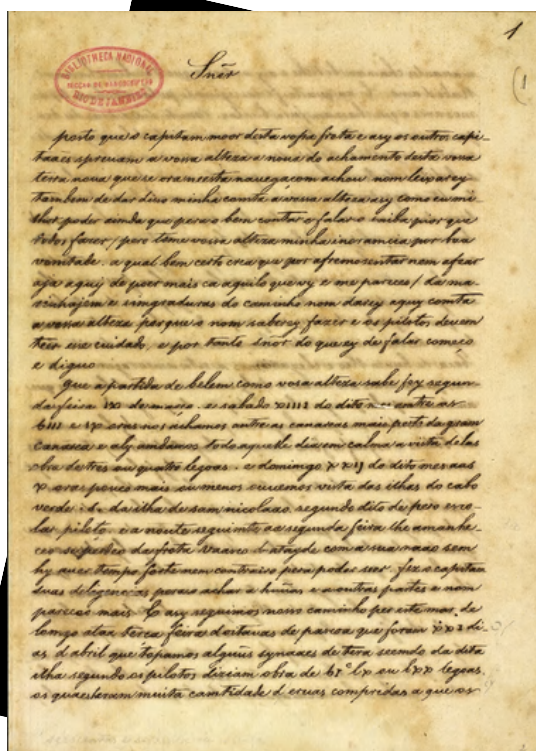 1
(1
BIBLIOTHECA NACIONAL
SECÇÃO DE MANUSCRIPTOS
RIO DE JANEIRO
Sñor
posto que o capitam moor desta vossa frota e asy os outros capi-
taaes sprevam a vossa alteza a nova do achamento desta vosa
terra nova que se ora nesta navegaçom achou, nom leixarey
tambem de dar diso minha comta a vossa alteza asy como eu mi-
lhor poder ainda que pera o bem contar e falar o saiba pior que
todos fazer / pero tome vossa alteza minha inorancia por boa
vomtade. a qual bem certo crea que por afremosentar nem afear
aja aquy de poer mais ca aquilo que vy e me pareceo / da ma-
rinhajem e simgraduras do caminho nom darey aquy comta
a vossa alteza porque o nom saberey fazer e os pilotos devem
teer ese cuidado, e por tanto sñor do que ey de falar começo
e diguo
que a partida de belem como vosa alteza sabe foy segun-
da feira ix de março. e sabado xiiii do dito mes antre as
biii e ix oras nos achamos antre as canareas mais perto da gram
canarea e aly amdamos todo aquele dia em calma a vista delas
obra de tres ou quatro legoas. e domingo xxij do dito mes aas
x oras pouco mais ou menos ouvemos vista das ilhas do cabo
verde. s. da ilha de sam nicolaao segundo dito de pero esco-
lar piloto. e a noute seguimte aa segunda feira lhe amanhe-
ceo se perdeo da frota vaasco d atayde com a sua naao sem
hy aver tempo forte nem contrairo pera poder seer. fez o capitam
suas deligencias pera o achar a huũas e a outras partes e nom
pareceo mais. E asy seguimos nosso caminho per este mar de
lomgo ataa terça feira d oitavas de pascoa que foram xxi di-
as d abril que topamos alguũs synaaes de tera seemdo da dita
ilha segundo os pilotos diziam obra de bjc lx ou lxx legoas.
os quaes eram muita camtidade d ervas compridas a que os